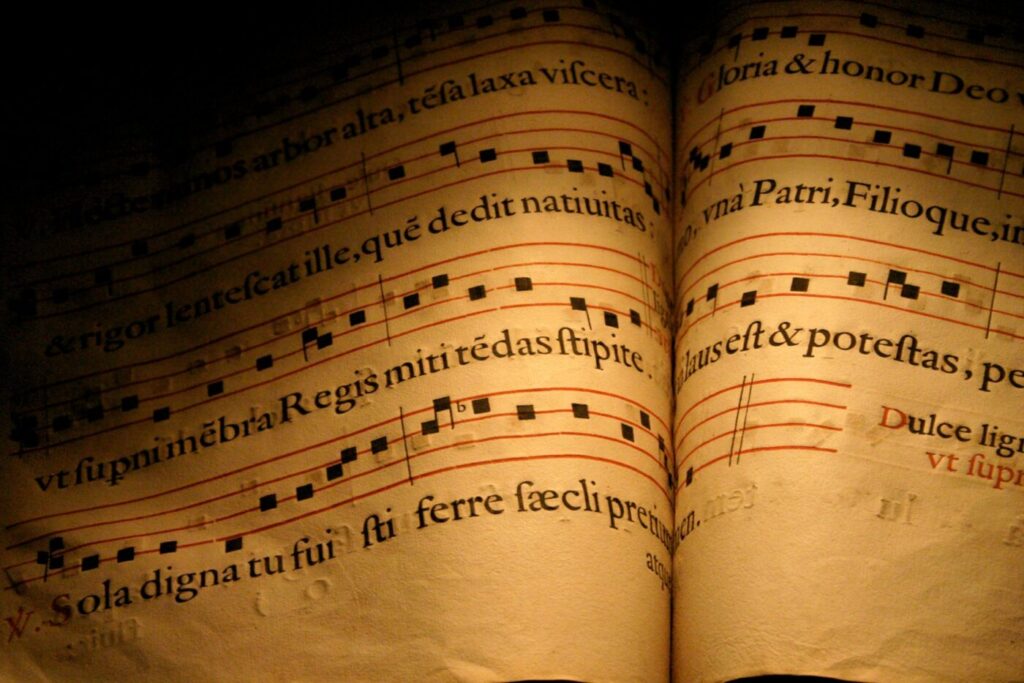 arbor alta, tēſa laxa viſcera :
& rigor lenteſcat ille, quē dedit natiuitas :
vt ſuꝑni mēbra Regis miti tēdas ſtipite.
℣. Sola digna tu fui ſti ferre ſæcli pretiu
atq
Gloria & honor Deo
o, vnà Patri, Filioque, in
laus eſt & poteſtas, pe
en.
Dulce lign
vt ſupr